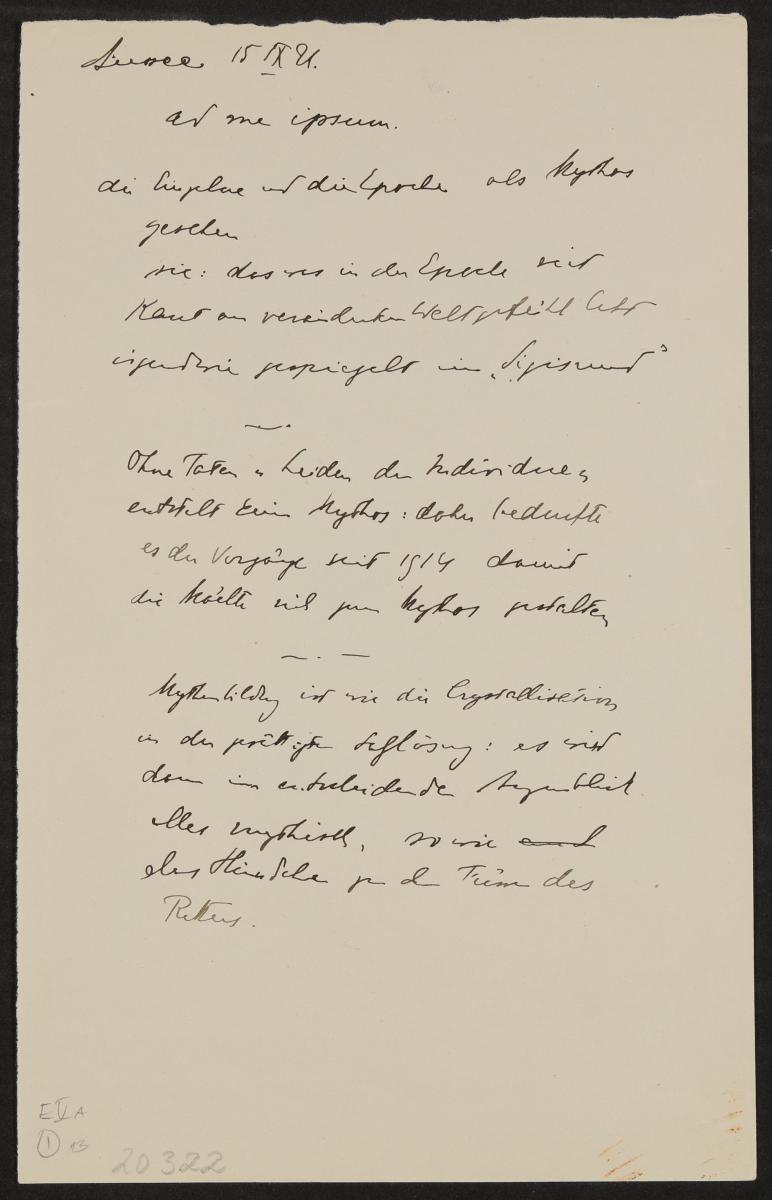 Aussee 15 IX 21.
ad me ipsum.
die Einzelne und die Epoche als Mythos
gesehen
sie: das was in der Epoche seit
Kant an verändertem Weltgefühl lebt
irgendwie gespiegelt im „Sigismund”
Ohne Taten u Leiden der Individuen
entsteht kein Mythos: daher bedurfte
es der Vorgänge seit 1914 damit
die Mächte sich zum Mythos gestalten
Mythenbildung ist wie die Crystallisation
in der gesättigten Salzlösung: es wird
dann im entscheidenden Augenblick
alles mythisch, so wie
das Hündchen zu den Füssen des
Ritters.
E V A
1 13
20322